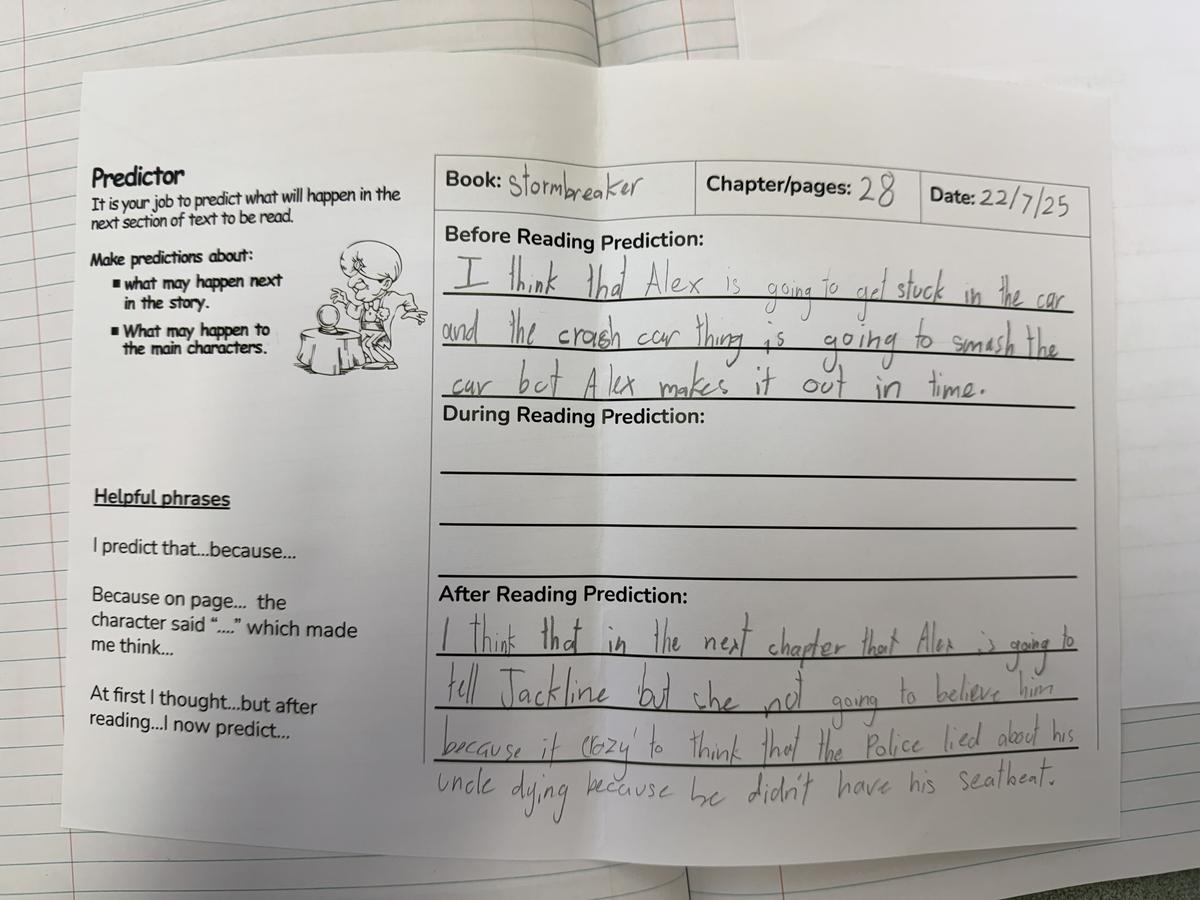 Predictor
It is your job to predict what will happen in the
next section of text to be read.
Make predictions about:
▪ what may happen next
in the story.
▪ What may happen to
the main characters.
Helpful phrases
I predict that...because...
Because on page... the
character said “....” which made
me think...
At first I thought...but after
reading...I now predict...
Book: Stormbreaker
Chapter/pages: 28
Date: 22/7/25
Before Reading Prediction:
I think that Alex is going to get stuck in the car
and the crash car thing is going to smash the
car but Alex makes it out in time.
During Reading Prediction:
After Reading Prediction:
I think that in the next chapter that Alex is going to
tell Jackline but she not going to believe him
because it crazy to think that the Police lied about his
uncle dying because he didn't have his seatbeat.